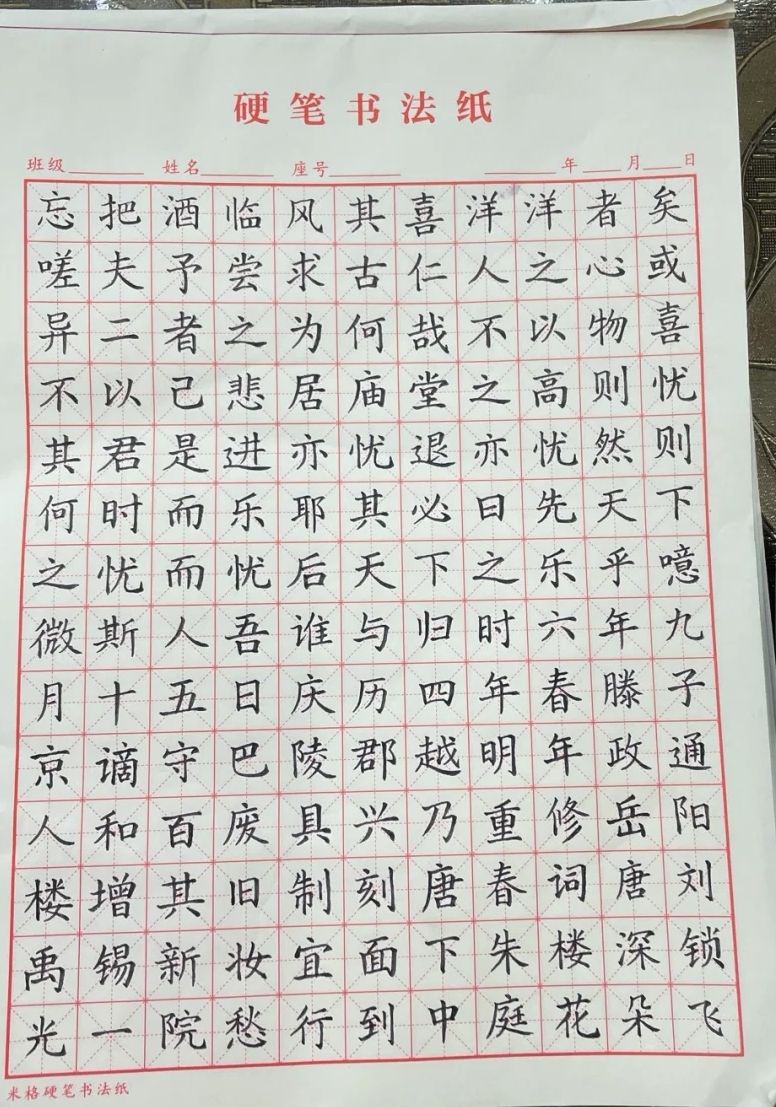 硬笔书法纸
班级 姓名 座号 年 月 日
忘把酒临风其喜洋洋者矣
嗟夫予尝求古仁人之心或
异二者之为何哉不以物喜
不以己悲居庙堂之高则忧
其君是进亦忧退亦忧然则
何时而乐耶其必曰先天下
之忧而忧后天下之乐乎噫
微斯人吾谁与归时六年九
月十五日庆历四年春滕子
京谪守巴陵郡越明年政通
人和百废具兴乃重修岳阳
楼增其旧制刻唐春词唐刘
禹锡新妆宜面下朱楼深锁
光一院愁行到中庭花朵飞
米格硬笔书法纸